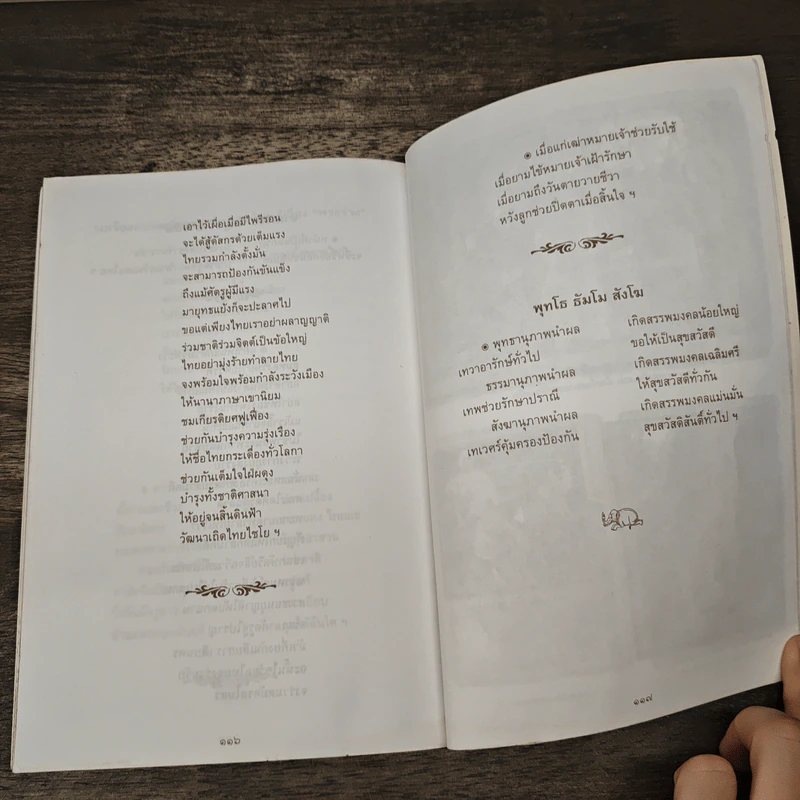 เอาไว้เผื่อเมื่อมีไพรีรอน
จะได้สู้ดัสกรด้วยเต็มแรง
ไทยรวมกำลังตั้งมั่น
จะสามารถป้องกันขันแข็ง
ถึงแม้ศัตรูผู้มีแรง
มายุทธแย้งก็จะปะลาศไป
ขอแต่เพียงไทยเราอย่าผลาญญาติ
ร่วมชาติร่วมจิตต์เป็นข้อใหญ่
ไทยอย่ามุ่งร้ายทำลายไทย
จงพร้อมใจพร้อมกำลังระวังเมือง
ให้นานาภาษาเขานิยม
ชมเกียรติยศฟูเฟื่อง
ช่วยกันบำรุงความรุ่งเรือง
ให้ชื่อไทยกระเดื่องทั่วโลกา
ช่วยกันเต็มใจใฝ่ผดุง
บำรุงทั้งชาติศาสนา
ให้อยู่จนสิ้นดินฟ้า
วัฒนาเถิดไทยไชโย ฯ
๑๑๖
๏ เมื่อแก่เฒ่าหมายเจ้าช่วยรับใช้
เมื่อยามไข้หมายเจ้าเฝ้ารักษา
เมื่อยามถึงวันตายวายชีวา
หวังลูกช่วยปิดตาเมื่อสิ้นใจ ฯ
พุทโธ ธัมโม สังโฆ
๏ พุทธานุภาพนำผล เกิดสรรพมงคลน้อยใหญ่
เทวาอารักษ์ทั่วไป ขอให้เป็นสุขสวัสดี
ธรรมานุภาพนำผล เกิดสรรพมงคลเฉลิมศรี
เทพช่วยรักษาปราณี ให้สุขสวัสดีทั่วกัน
สังฆานุภาพนำผล เกิดสรรพมงคลแม่นมั่น
เทเวศร์คุ้มครองป้องกัน สุขสวัสดิสันติ์ทั่วไป ฯ
๑๑๗